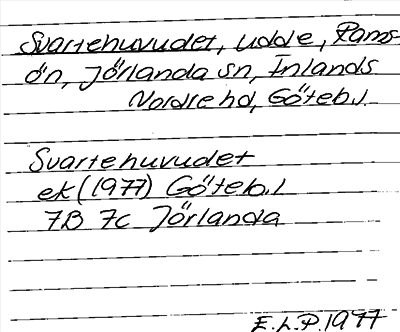 Svartehuvudet, udde, Rams-
ön, Jörlanda sn, Inlands
Nordre hd, Göteb.l.
Svartehuvudet
ek (1977) Göteb.l
7B 7c Jörlanda
E.L.P. 1977